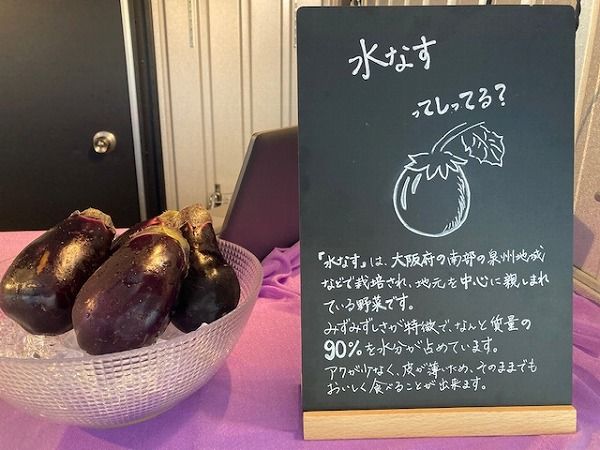 水なす
ってしってる？
『水なす』は、大阪府の南部の泉州地域
などで栽培され、地元を中心に親しまれ
ている野菜です。
みずみずしさが特徴で、なんと質量の
90%を水分が占めています。
アクが少なく、皮が薄いため、そのままでも
おいしく食べることが出来ます。